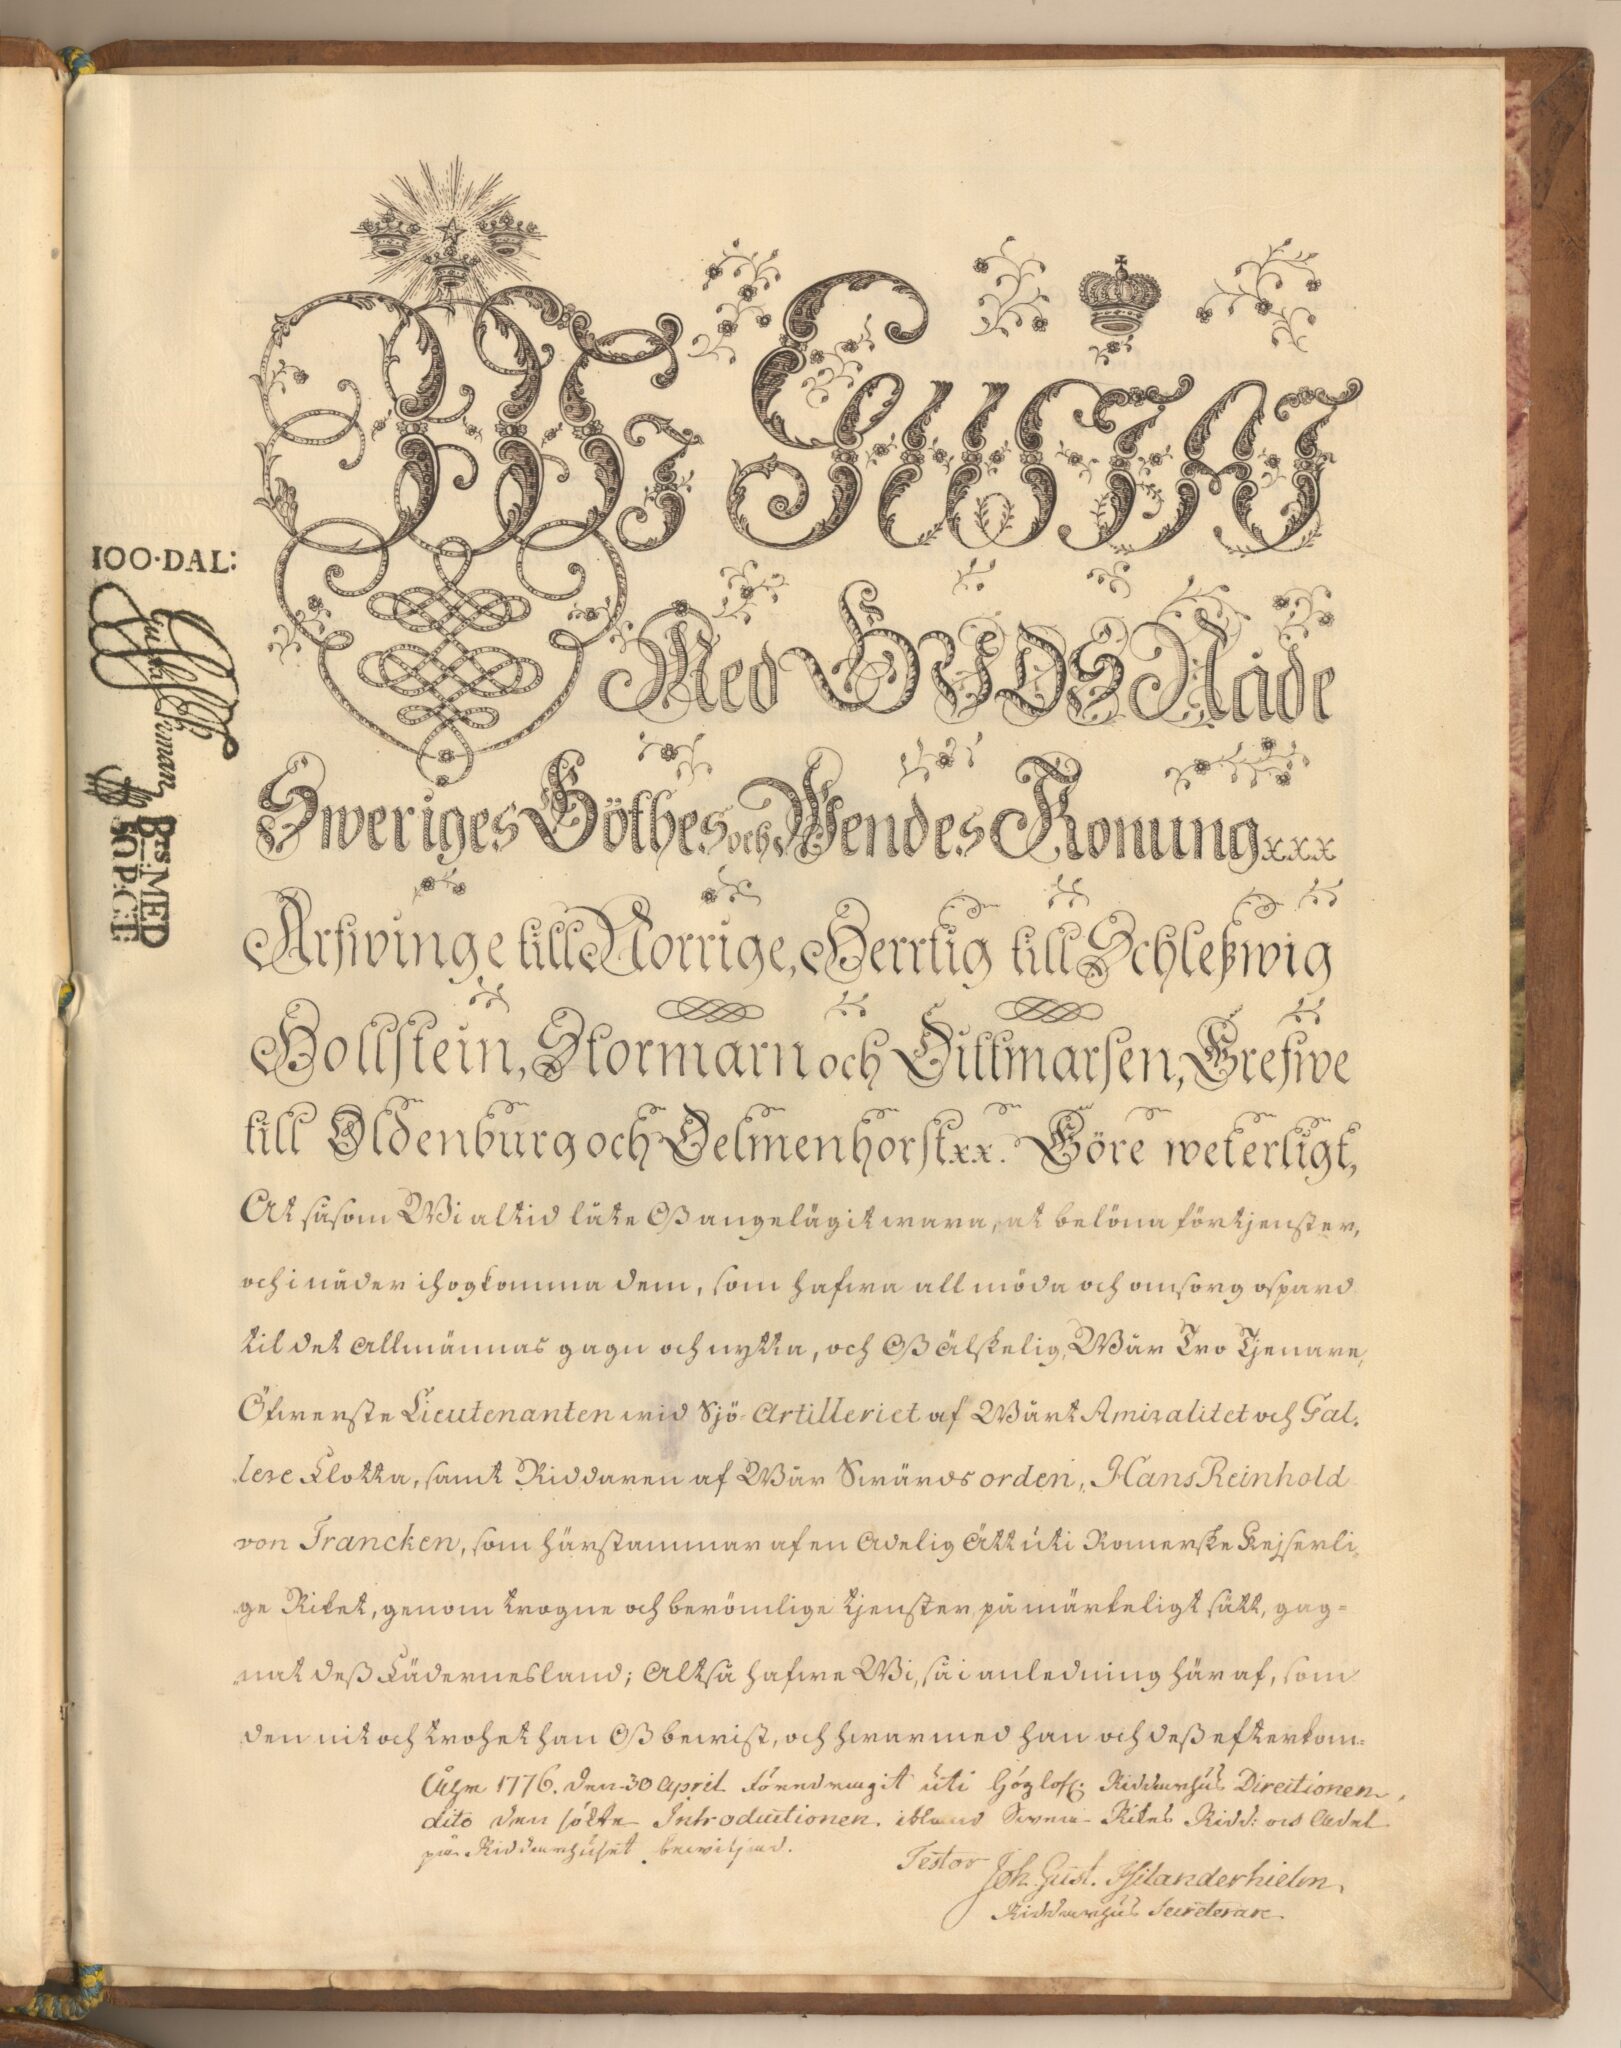 WI Gustaf
Med GUDS Nåde
Sweriges Göthes och Wendes Konung x.x.x
Arfwinge till Norrige, Hertig till Schleßwig
Hollstein, Stormarn och Dittmarsen, Grefwe
till Oldenburg och Delmenhorst x.x. Göre weterligt,
At såsom Wi altid låte Oß angelägit wara, at belöna förtjenster,
och i nåder ihogkomma dem, som hafwa all möda och omsorg ospard
til det Allmännas gagn och nytta, och Oß Älskelig, Wår Tro Tjenare,
Öfwerste Lieutenanten wid Sjö-Artilleriet af Wårt Amiralitet och Gal-
lere Flotta, samt Riddaren af Wår Swärds orden, Hans Reinhold
von Francken, som härstammar af en Adelig Ätt uti Romerske Kejserli-
ge Riket, genom trogne och berömlige tjenster på märkeligt sätt, gag-
nat deß Fädernesland; Altså hafwe Wi, så i anledning häraf, som
den nit och trohet han Oß bewist, och hwarmed han och deß efterkom-
1776. den 30 April föredragit uti Höglofl: Riddarhus Directionen,
dito den sökte Introductionen ibland Swea Rikes Ridd: och Adel
på Riddarhuset bewiljad.
Testor
Joh. Gust. Psilanderhielm,
Riddarhus Secreterare
100·DAL:
SMED